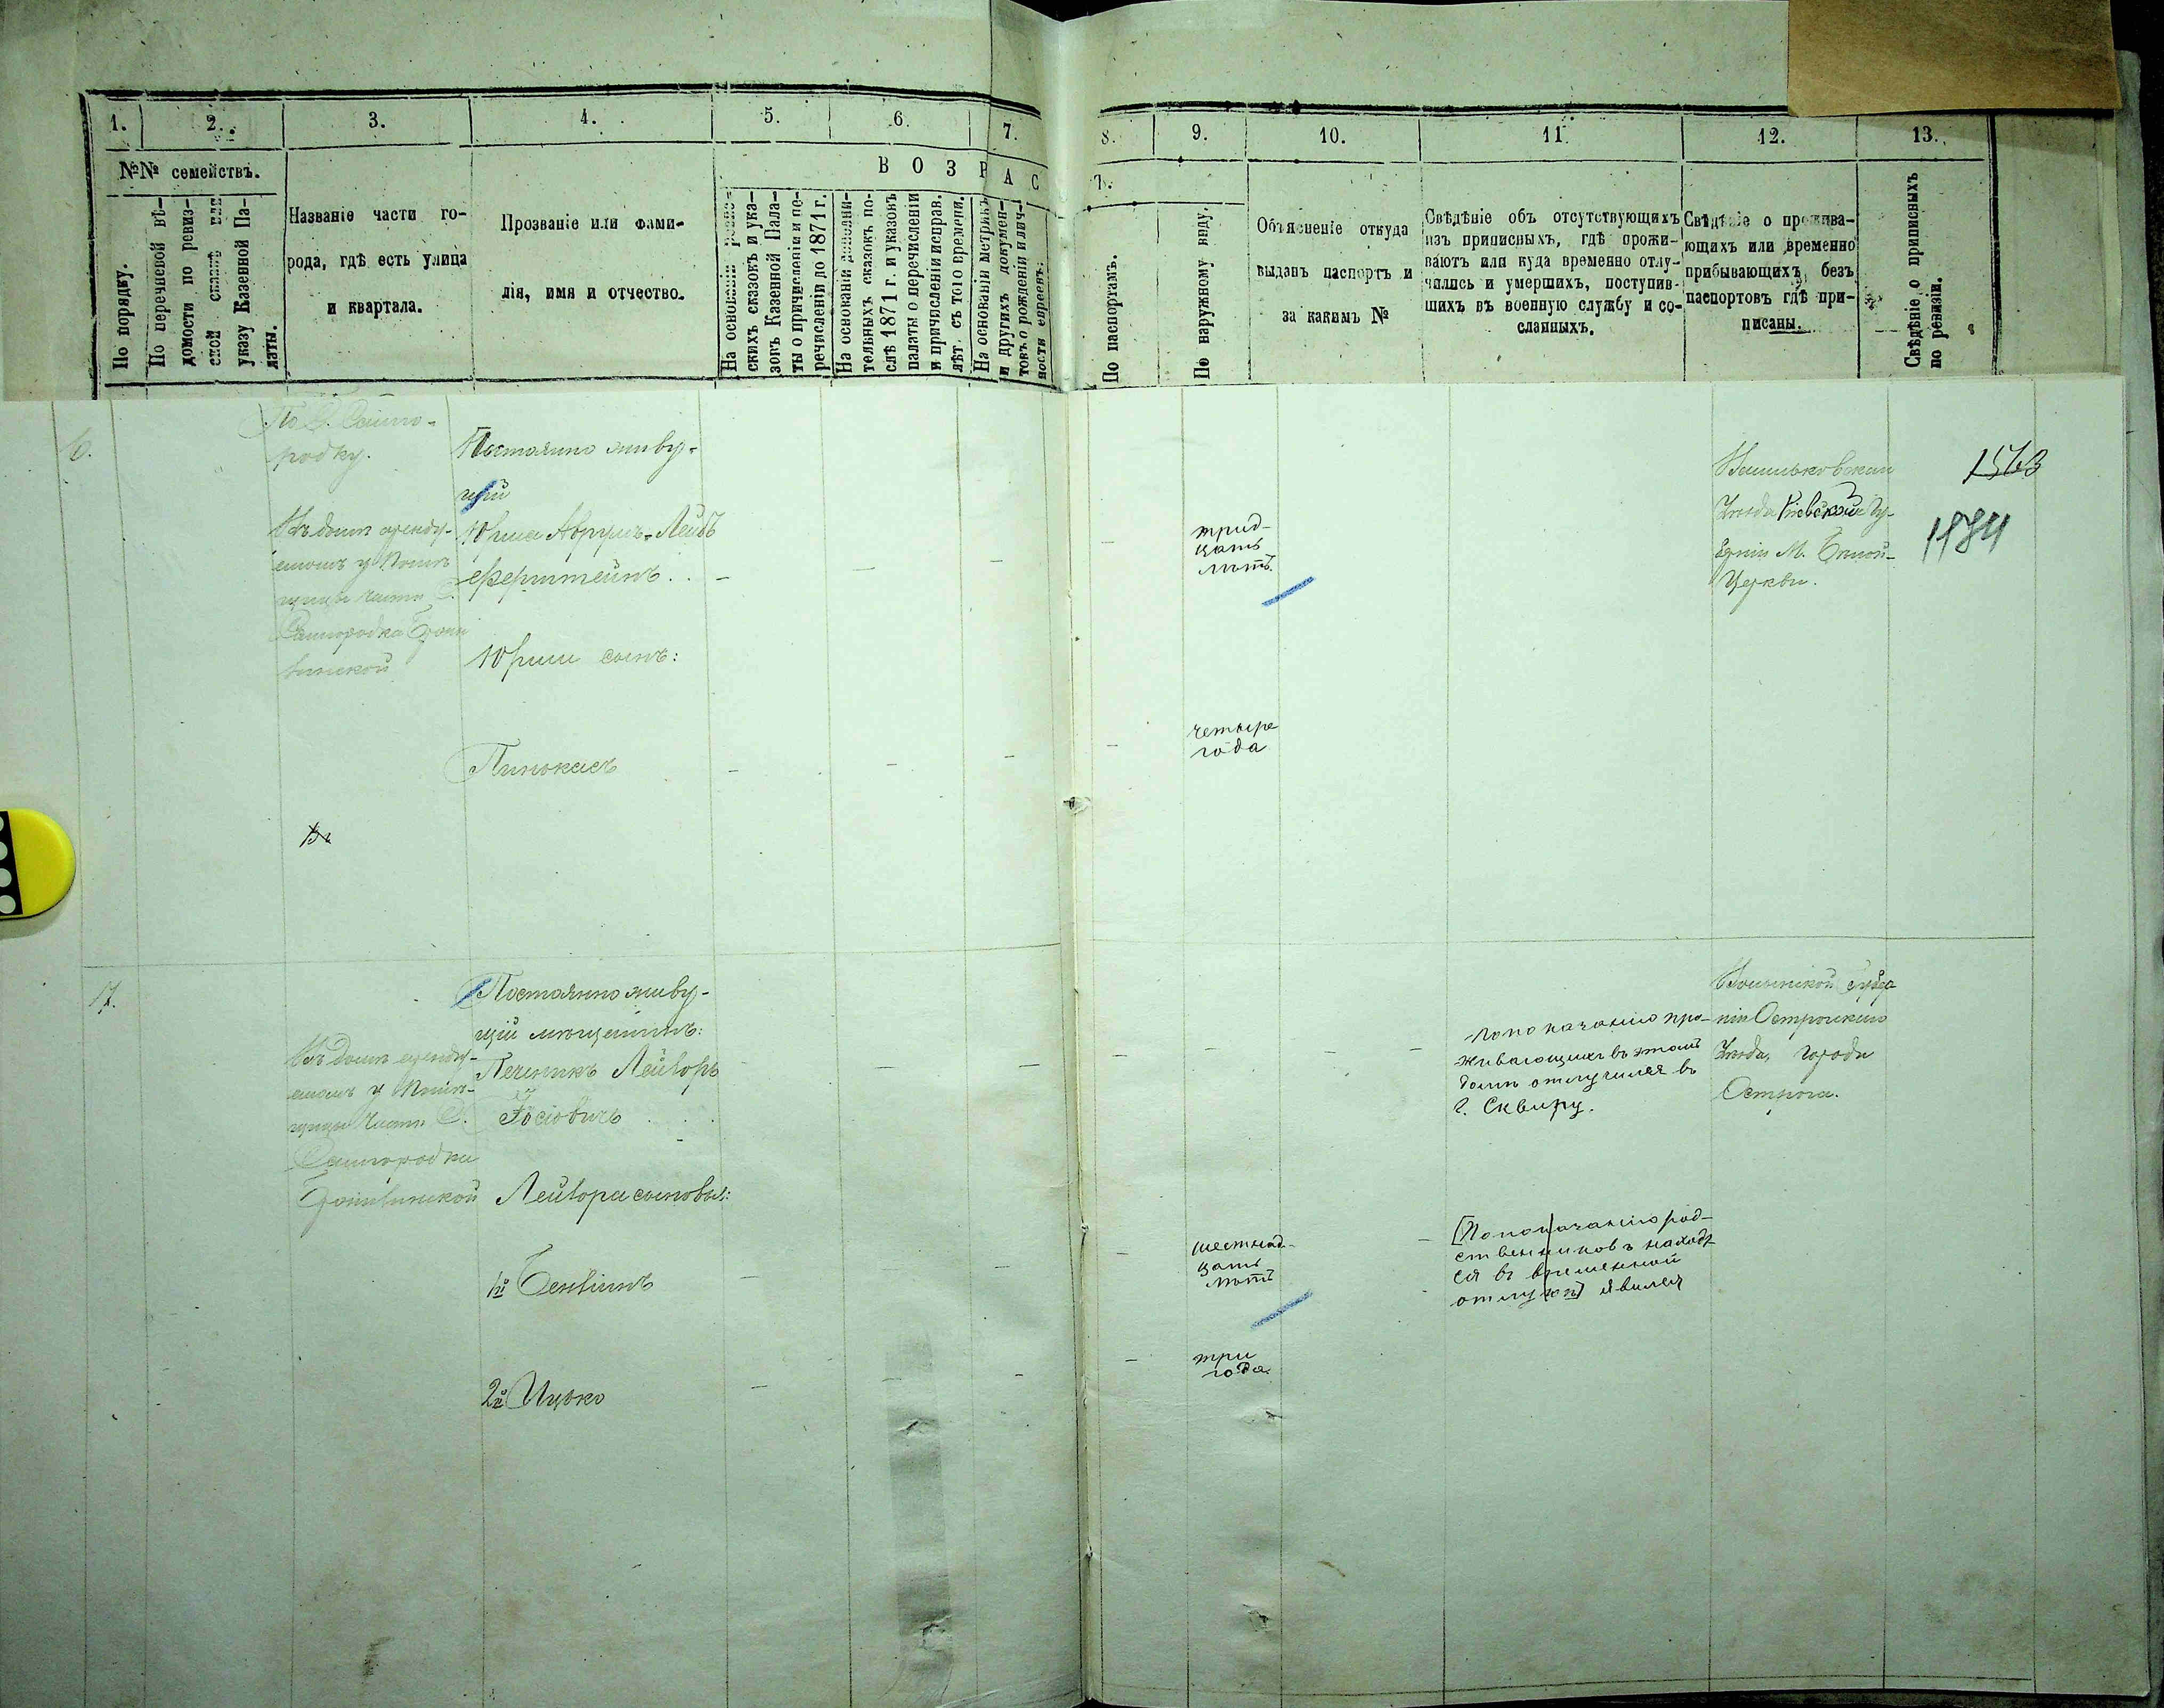 1.
2.
3.
4.
5.
6.
7.
8.
9.
10.
11.
12.
13.
№№ семействъ.
По порядку.
По перечневой вѣ-
домости по ревиз-
ской сказкѣ или
указу Казенной Па-
латы.
Названіе части го-
рода, гдѣ есть улица
и квартала.
Прозваніе или фами-
лія, имя и отчество.
В О З Р А С
Т.
На основаніи ревиз-
скихъ сказокъ и ука-
зовъ Казенной Пала-
ты о причисленіи и пе-
речисленіи до 1871 г.
На основаніи дополни-
тельныхъ сказокъ по-
слѣ 1871 г. и указовъ
палаты о перечисленіи
и причисленіи исправ.
лѣт. съ того времени.
На основаніи метрикъ
и другихъ докумен-
товъ о рожденіи и лич-
ности евреевъ.
По паспортамъ.
По наружному виду.
Объясненіе откуда
выданъ паспортъ и
за какимъ №
Свѣдѣніе объ отсутствующихъ
изъ приписныхъ, гдѣ прожи-
ваютъ или куда временно отлу-
чились и умершихъ, поступив-
шихъ въ военную службу и со-
сланныхъ.
Свѣдѣніе о прожива-
ющихъ или временно
прибывающихъ безъ
паспортовъ гдѣ при-
писаны.
Свѣдѣніе о приписныхъ
по ревизіи.
6.
По С. Само-
родку.
Въ домѣ аренду-
емомъ у Помѣ
щицы части С.
Самородка
Постоянно живу-
щій
Юрша Аврумъ-Лейбъ
Ферштейнъ . .
Юрши сынъ:
Пинькасъ
Въ
трид-
цать
лѣтъ.
четыре
года
Васильковскаго
Уѣзда Кіевской Гу-
берніи М. Бѣлой-
Церкви.
1563
1784
17.
Въ домѣ аренду-
емомъ у Помѣ-
щицы Части С.
Самородка
Постоянно живу-
щій мѣщанинъ:
Печеникъ Лейзоръ
Іосіовичъ . . .
Лейзора сыновья:
1й Бенвіинъ
2й Ицько
шестнад-
цать
лѣтъ
три
года.
По показанію про-
живающихъ въ этомъ
домѣ отлучился въ
г. Сквиру.
[По показанію род-
ственниковъ находит-
ся въ временной
отлучкѣ] явился
Волынской губер
ніи Острожскаго
Уѣзда, города
Острога.